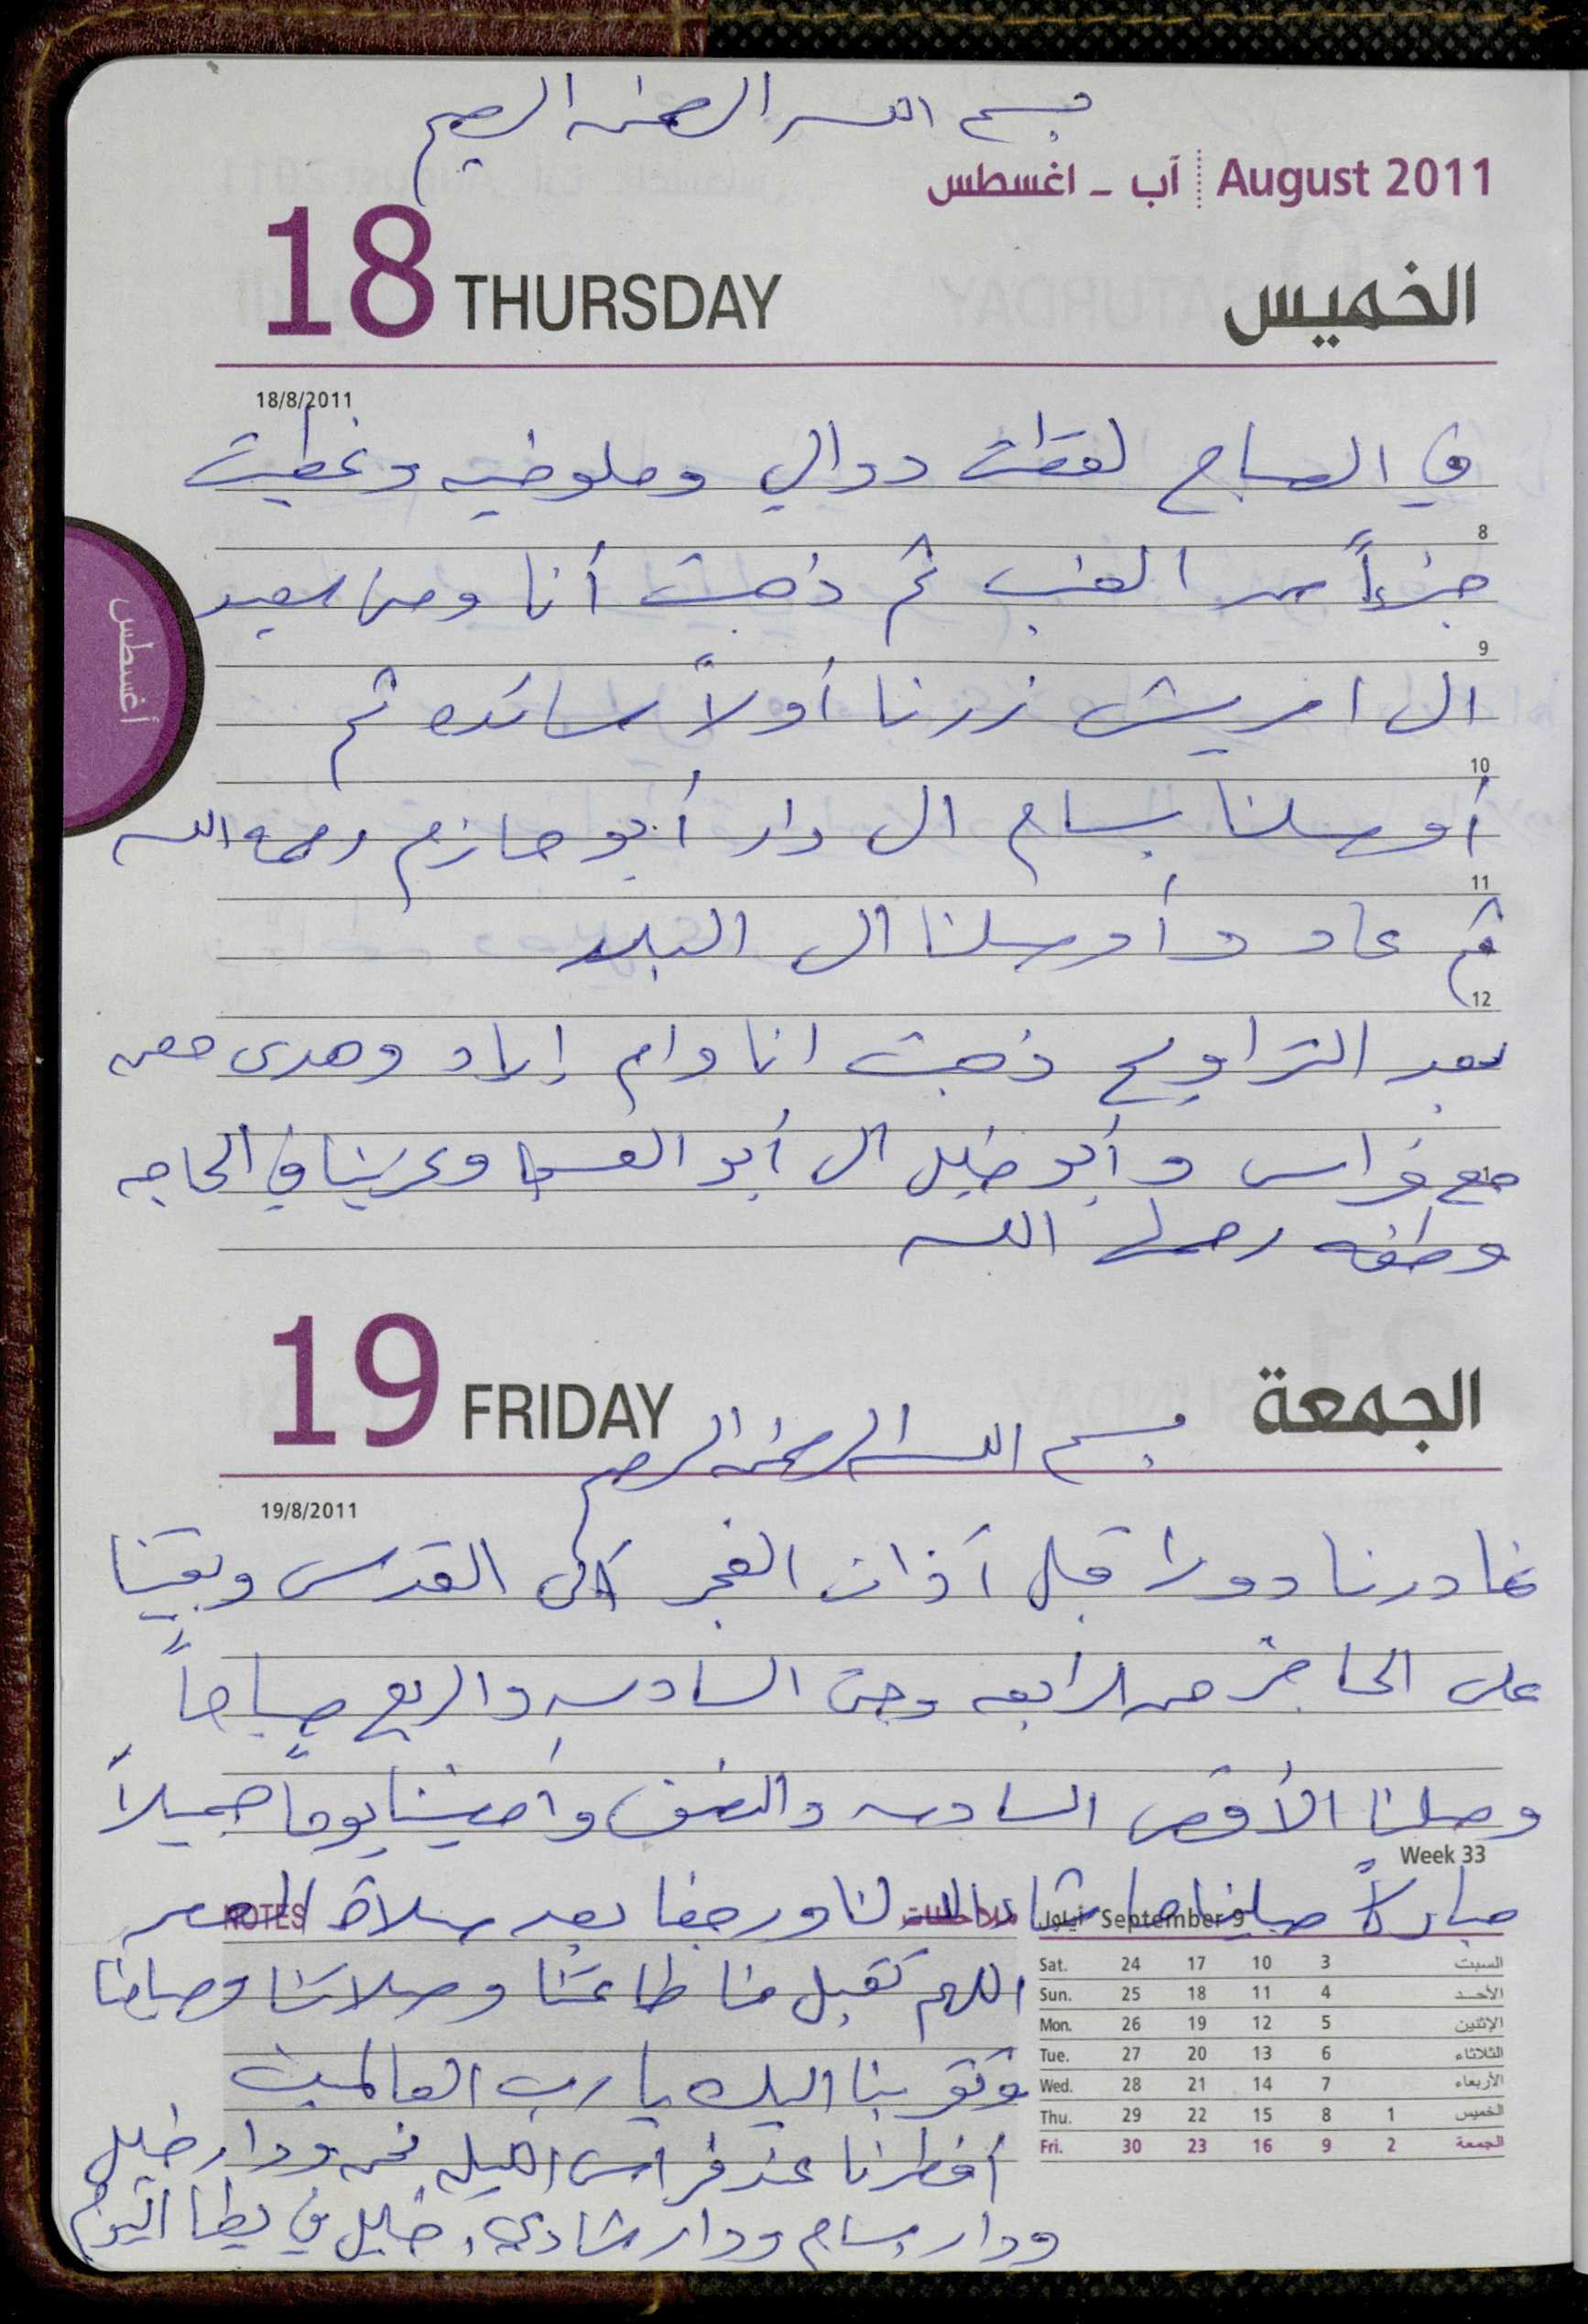 بسم الله الرحمن الرحيم
August 2011 آب - اغسطس
18 THURSDAY الخميس
18/8/2011
في الصباح لقطت دوالي وملوخيه وغطيت
8
جزءاً من العنب ثم ذهبت أنا ومن سعيد
9
الى امريش زرنا أولاً سائده ثم
10
أوصلنا بسام الى دار أبو حازم رحمه الله
11
ثم عاد وأوصلنا الى البلد
12
بعد التراويح ذهبت انا وام إياد وهدى معه
1
مع فراس وأبو خليل الى أبو العسل وعزينا في الحاجه
وطفه رحمها الله
أغسطس
19 FRIDAY الجمعة
بسم الله الرحمن الرحيم
19/8/2011
غادرنا دورا قبل أذان الفجر الى القدس وبقينا
على الحاجز من الرابعه وحتى السادسه والربع صباحاً
وصلنا الأقصى السادسه والنصف وأمضينا يوماً جميلاً
Week 33
مباركاً صلينا ما شاء الله لنا ورجعنا بعد صلاة العصر
NOTES ملاحظات
أيلول September 9
اللهم تقبل منا طاعتنا وصلاتنا وصيامنا
وتقربنا اليك يا رب العالمين
أفطرنا عند فراس الليله نحن ودار خليل
ودار بسام ودار شادي، خليل في يطا اليوم
Sat. 24 17 10 3 السبت
Sun. 25 18 11 4 الأحد
Mon. 26 19 12 5 الإثنين
Tue. 27 20 13 6 الثلاثاء
Wed. 28 21 14 7 الأربعاء
Thu. 29 22 15 8 1 الخميس
Fri. 30 23 16 9 2 الجمعة